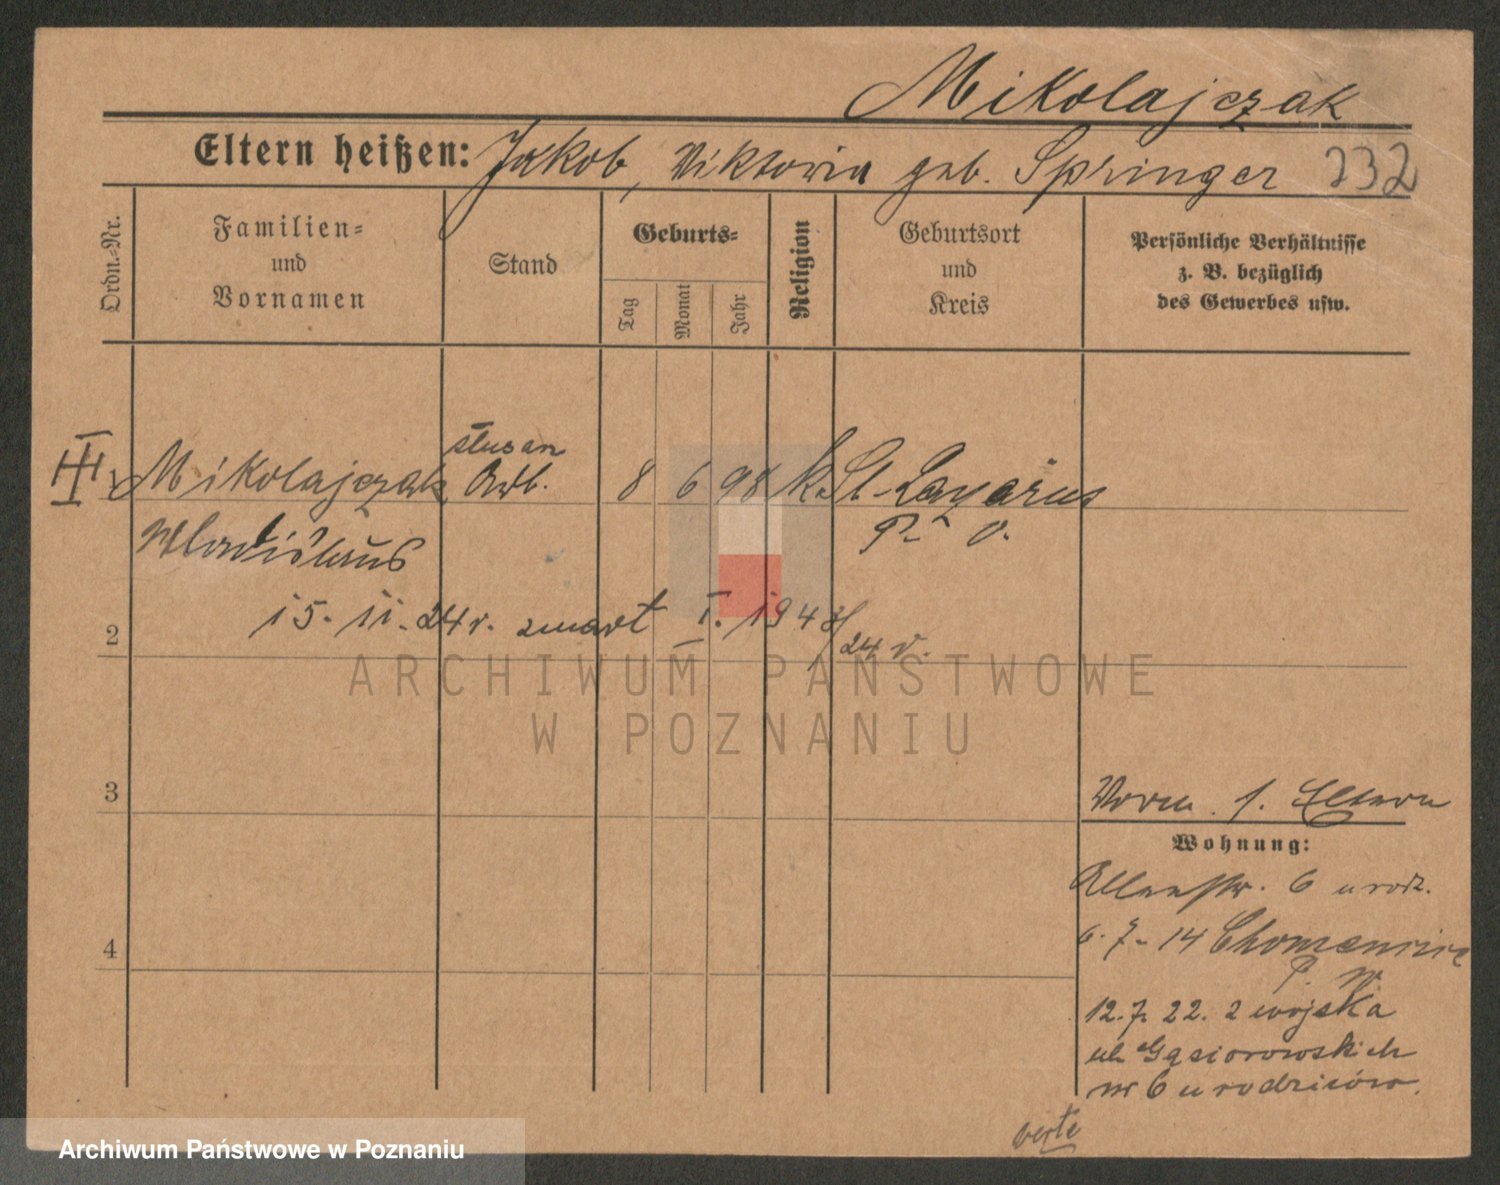 Mikolajczak
Eltern heißen: Jakob, Viktoria geb. Springer 232
Ordn.-Nr.
Familien-
und
Vornamen
Stand
Geburts-
Tag
Monat
Jahr
Religion
Geburtsort
und
Kreis
Persönliche Verhältnisse
z. B. bezüglich
des Gewerbes usw.
III
ślusarz
Mikolajczak Arb. 8 6 98 k. St. Lazarus
Wladislaus P. O.
15. 11. 24 r. zmarł I. 1943/
2
24 r.
3
Vorm. f. Eltern
Wohnung:
6 u rodz.
4
6. 7. 14
P. W.
12. 7. 22. z wojska
ul. Gąsiorowskich
nr 6 u rodziców.
verte
ARCHIWUM PAŃSTWOWE
W POZNANIU
Archiwum Państwowe w Poznaniu